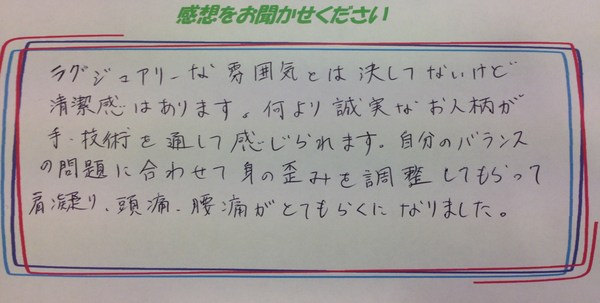 感想をお聞かせください
ラグジュアリーな雰囲気とは決してないけど
清潔感はあります。何より誠実なお人柄が
手、技術を通して感じられます。自分のバランス
の問題に合わせて身の歪みを調整してもらって
肩凝り、頭痛、腰痛がとてもらくになりました。